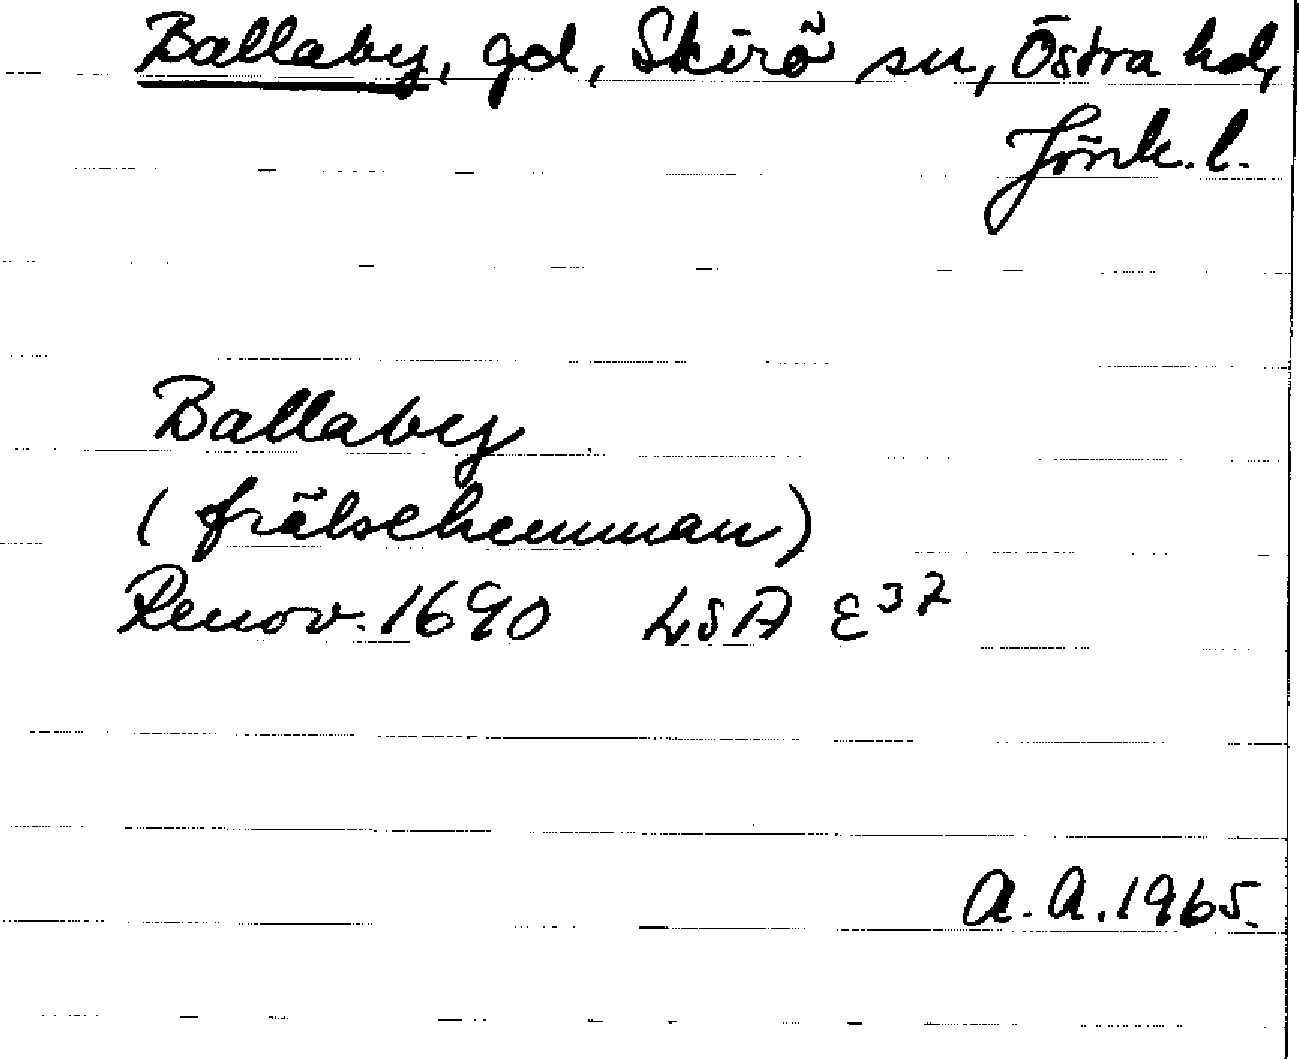 Ballaby, gd, Skirö sn, Östra hd,
Jönk. l.
Ballaby
(frälsehemman)
Renov. 1690 LSA E 37
A. A. 1965.